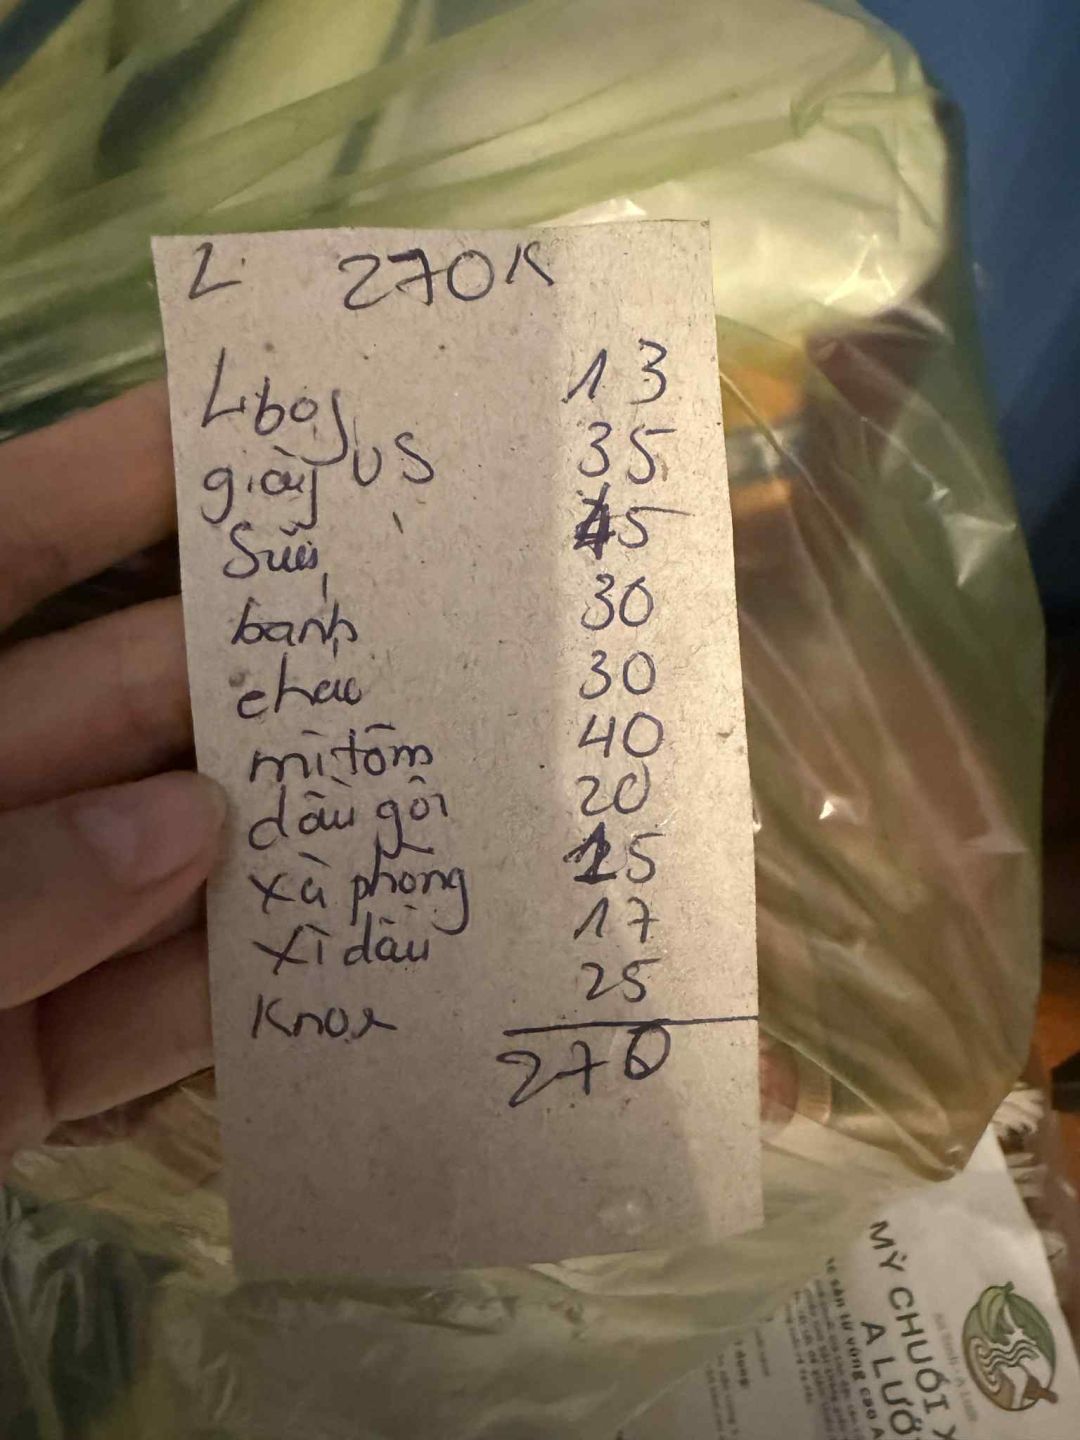 L 270K
Lboy 13
giấy VS 35
Sữa 45
bánh 30
chao 30
mì tôm 40
dầu gội 20
xà phòng 15
xì dầu 17
Knor 25
270
MỲ CHUỐI
A LƯỚ